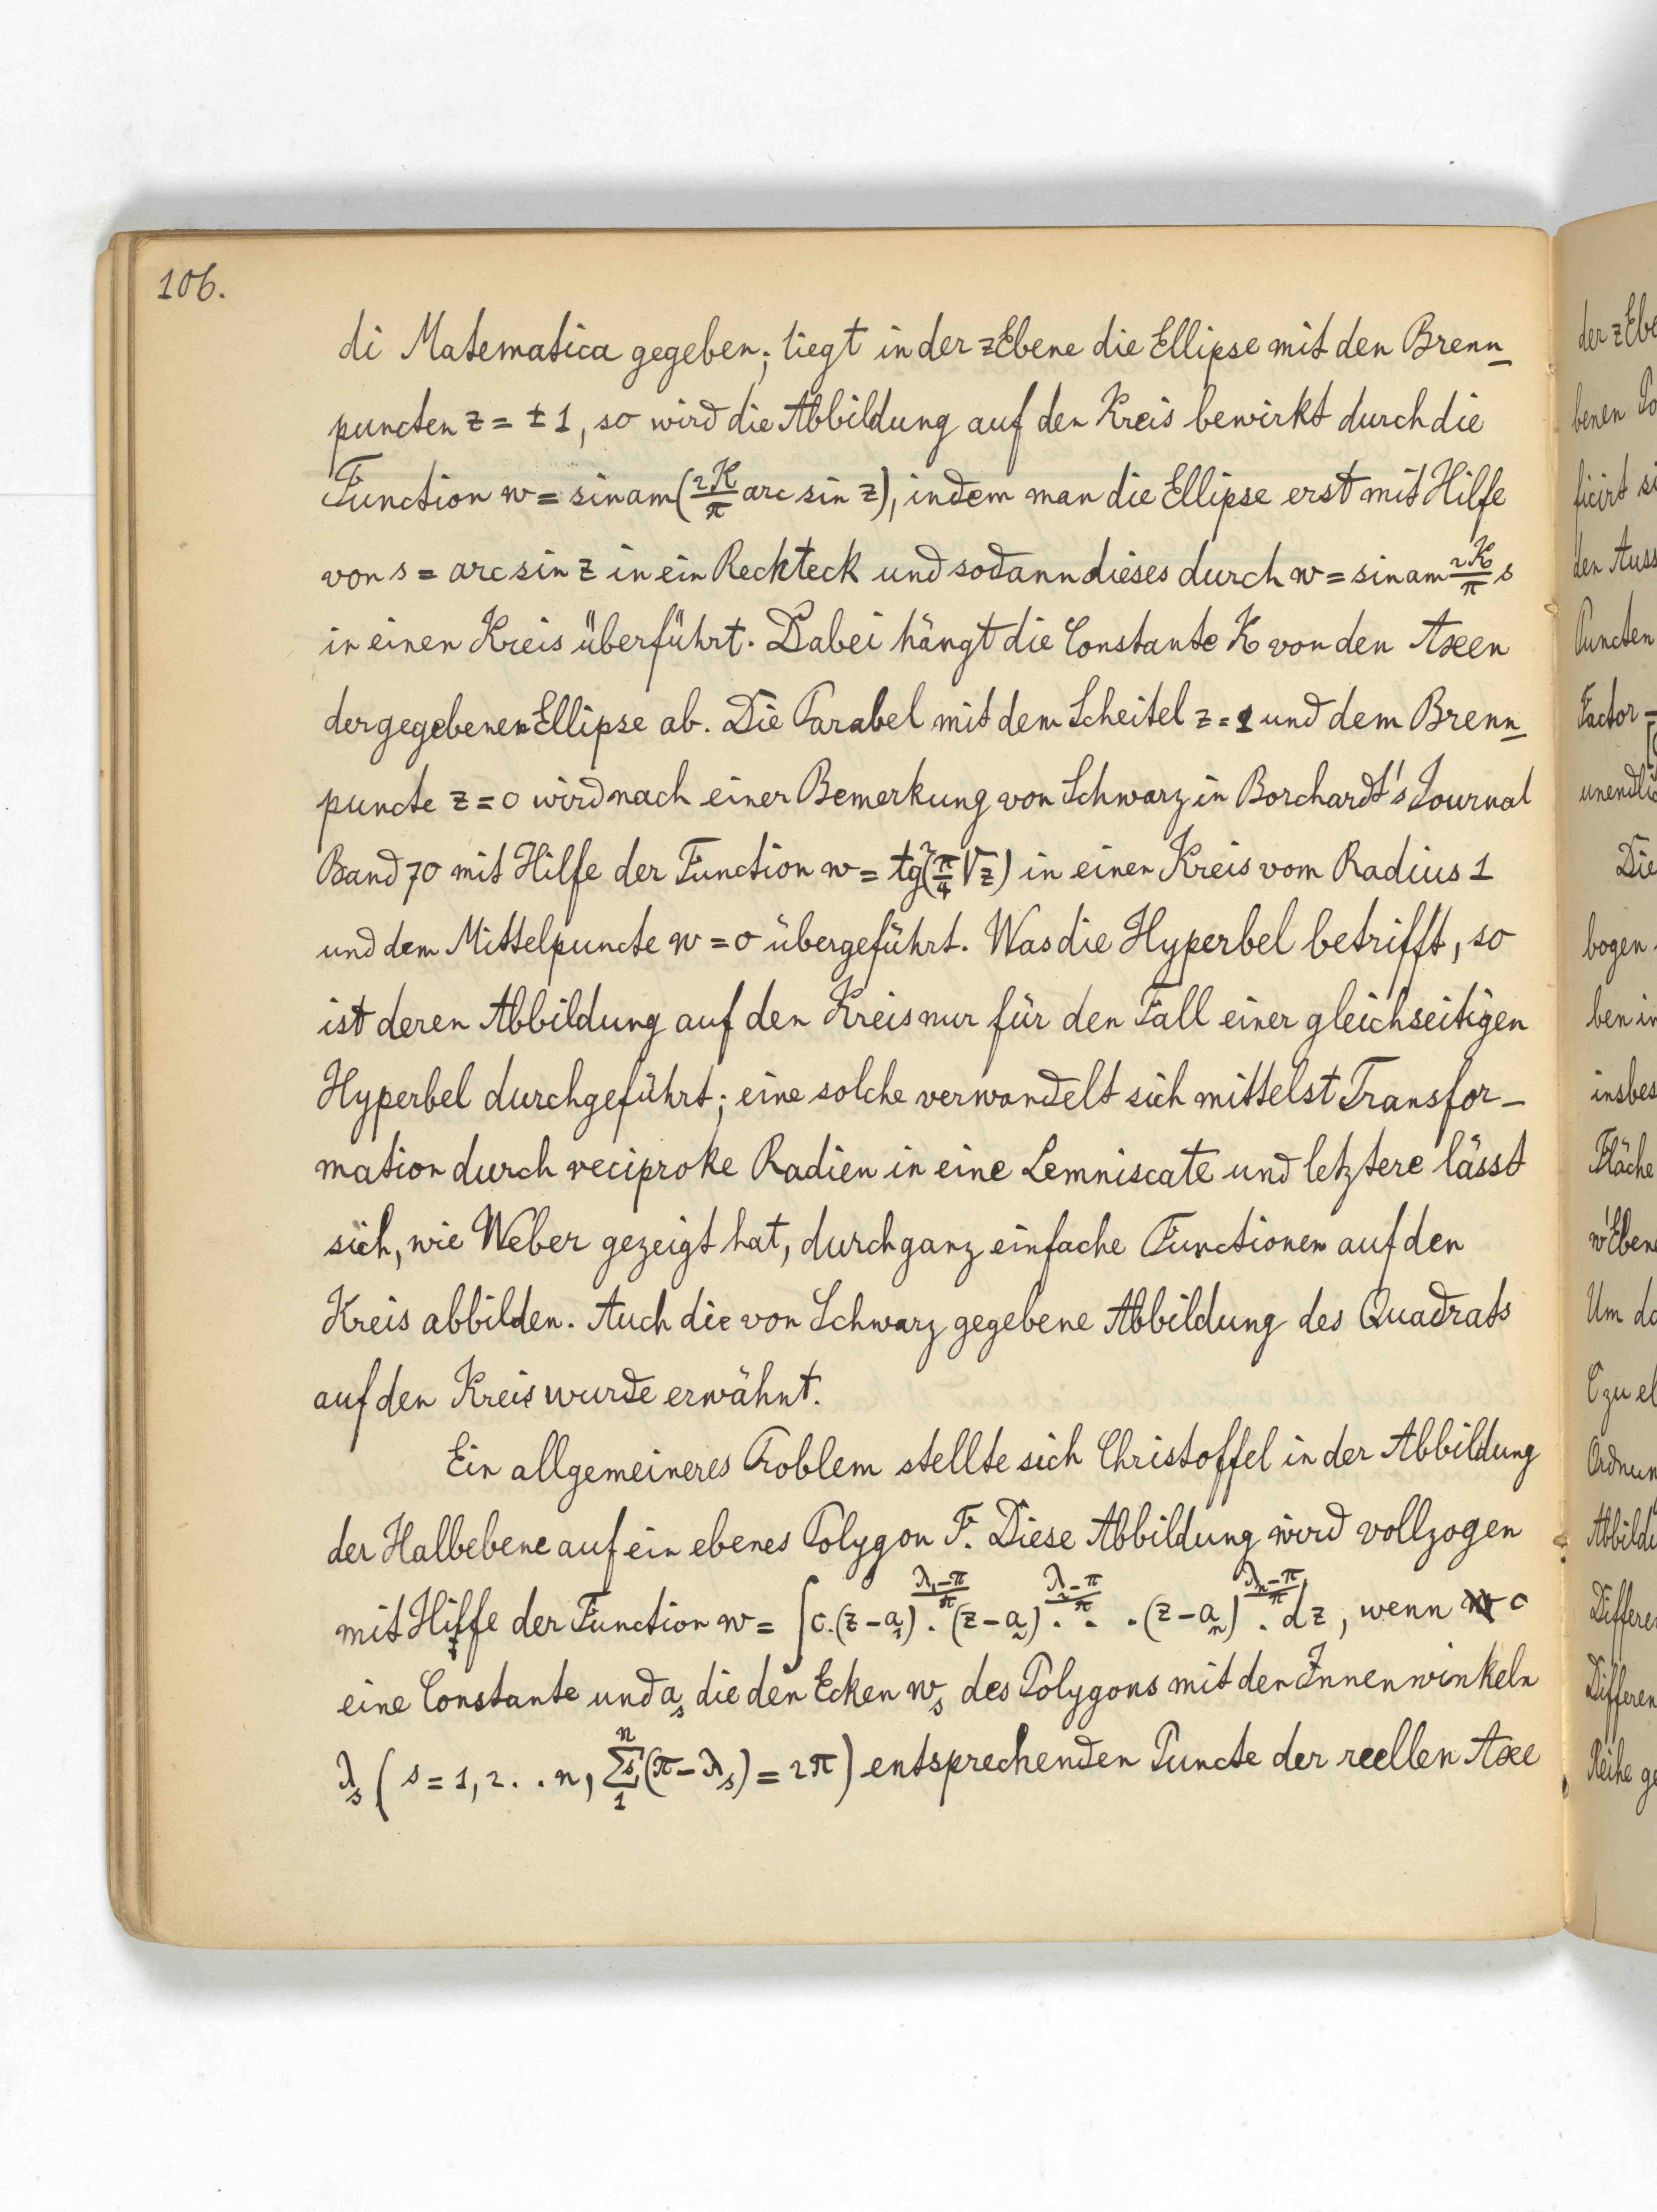 106.
di Matematica gegeben; liegt in der zEbene die Ellipse mit den Brenn_
puncten z = ± 1, so wird die Abbildung auf den Kreis bewirkt durch die
Function w = sinam(2K/π arc sin z), indem man die Ellipse erst mit Hilfe
von s = arc sin z in ein Reckteck und sodann dieses durch w = sinam 2K/π s
in einen Kreis überführt. Dabei hängt die Constante K von den Axen
der gegebenen Ellipse ab. Die Parabel mit dem Scheitel z = 1 und dem Brenn_
puncte z = 0 wird nach einer Bemerkung von Schwarz in Borchardt's Journal
Band 70 mit Hilfe der Function w = tg²(π/4 √z) in einen Kreis vom Radius 1
und dem Mittelpuncte w = 0 übergeführt. Was die Hyperbel betrifft, so
ist deren Abbildung auf den Kreis nur für den Fall einer gleichseitigen
Hyperbel durchgeführt; eine solche verwandelt sich mittelst Transfor_
mation durch reciproke Radien in eine Lemniscate und letztere lässt
sich, wie Weber gezeigt hat, durch ganz einfache Functionen auf den
Kreis abbilden. Auch die von Schwarz gegebene Abbildung des Quadrats
auf den Kreis wurde erwähnt.
Ein allgemeineres Problem stellte sich Christoffel in der Abbildung
der Halbebene auf ein ebenes Polygon F. Diese Abbildung wird vollzogen
mit Hilfe der Function w = ∫c.(z-a₁)^((λ₁-π)/π) . (z-a₂)^((λ₂-π)/π) . . . (z-aₙ)^((λₙ-π)/π) . dz, wenn c
eine Constante und aₛ die den Ecken wₛ des Polygons mit den Innenwinkeln
λₛ (s = 1, 2 . . n, Σ₁ⁿ (π-λₛ) = 2π) entsprechenden Puncte der reellen Axe
der zEbe
benen Po
ficirt si
den Auss
Puncten
Factor
unendlic
Die
bogen
ben in
insbes
Fläche
w'Ebene
Um da
C zu el
Ordnun
Abbildu
Differen
Differen
Reihe ge